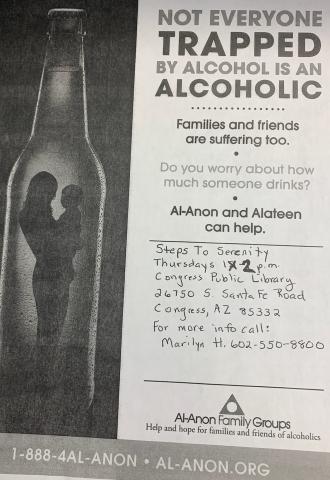 NOT EVERYONE
TRAPPED
BY ALCOHOL IS AN
ALCOHOLIC
Families and friends
are suffering too.
Do you worry about how
much someone drinks?
Al-Anon and Alateen
can help.
Steps To Serenity
Thursdays 2 p.m.
Congress Public Library
26750 S. Santa Fe Road
Congress, AZ 85332
For more info call:
Marilyn H. 602-550-8800
Al-Anon Family Groups
Help and hope for families and friends of alcoholics
1-888-4AL-ANON • AL-ANON.ORG